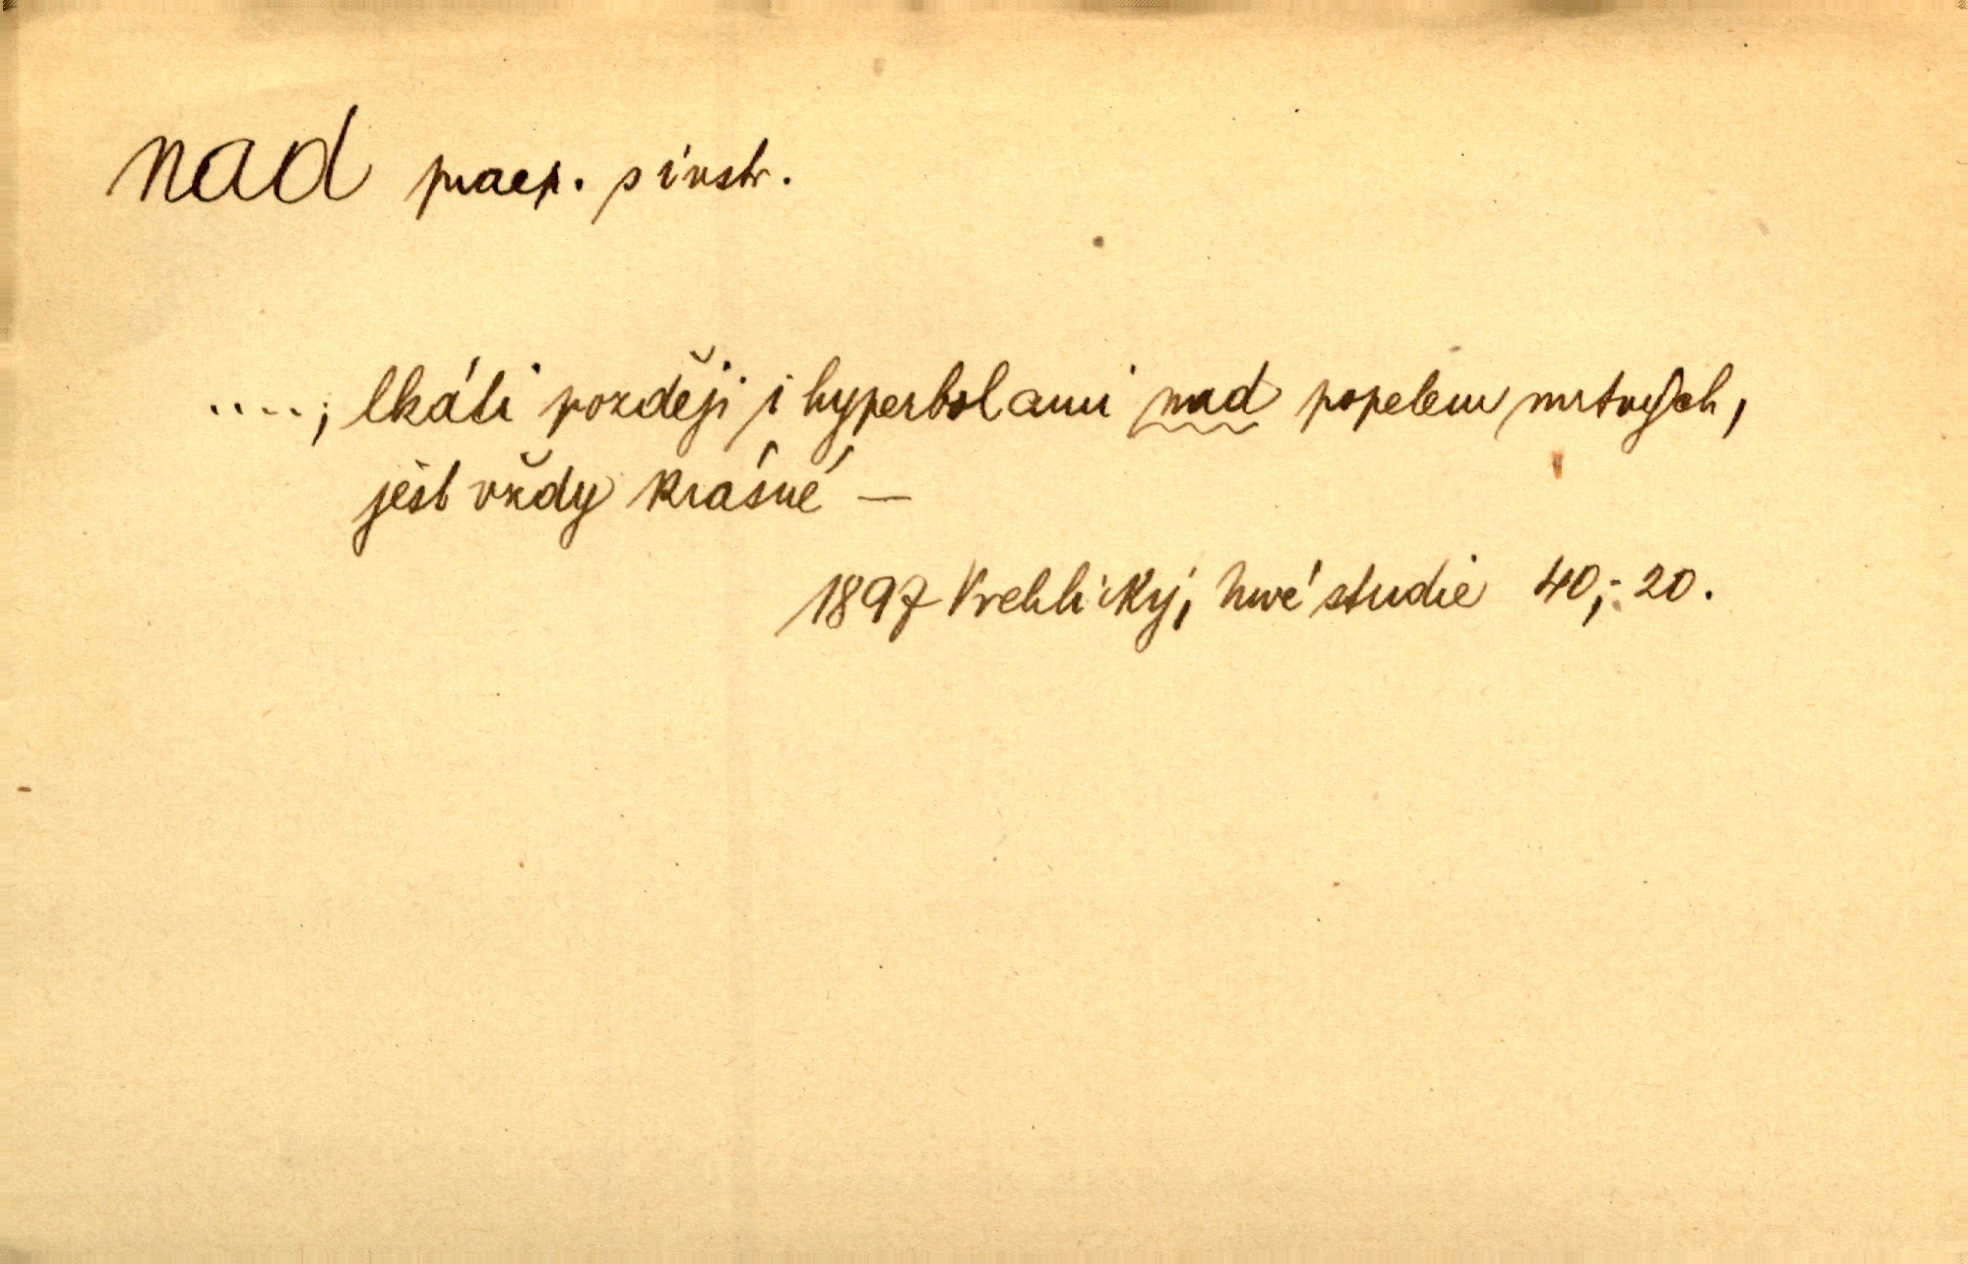 nad praep. s instr.
...., lkáti později i hyperbolami nad popelem mrtvých,
jest vždy krásné —
1897 Vrchlický, studie 40,- 20.